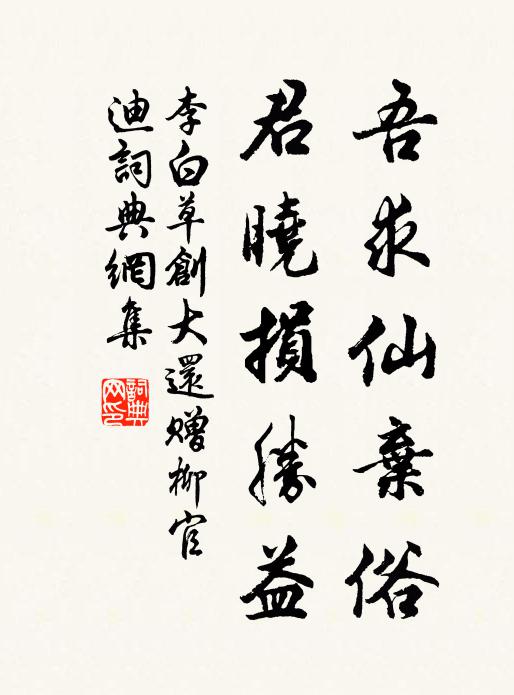 吾求仙棄俗
君曉損勝益
李白草創大還赠柳官
迪詞典網集
詞典
网印